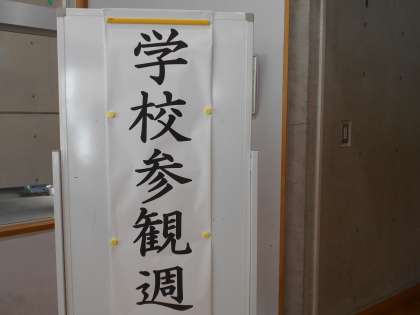 学校参観週